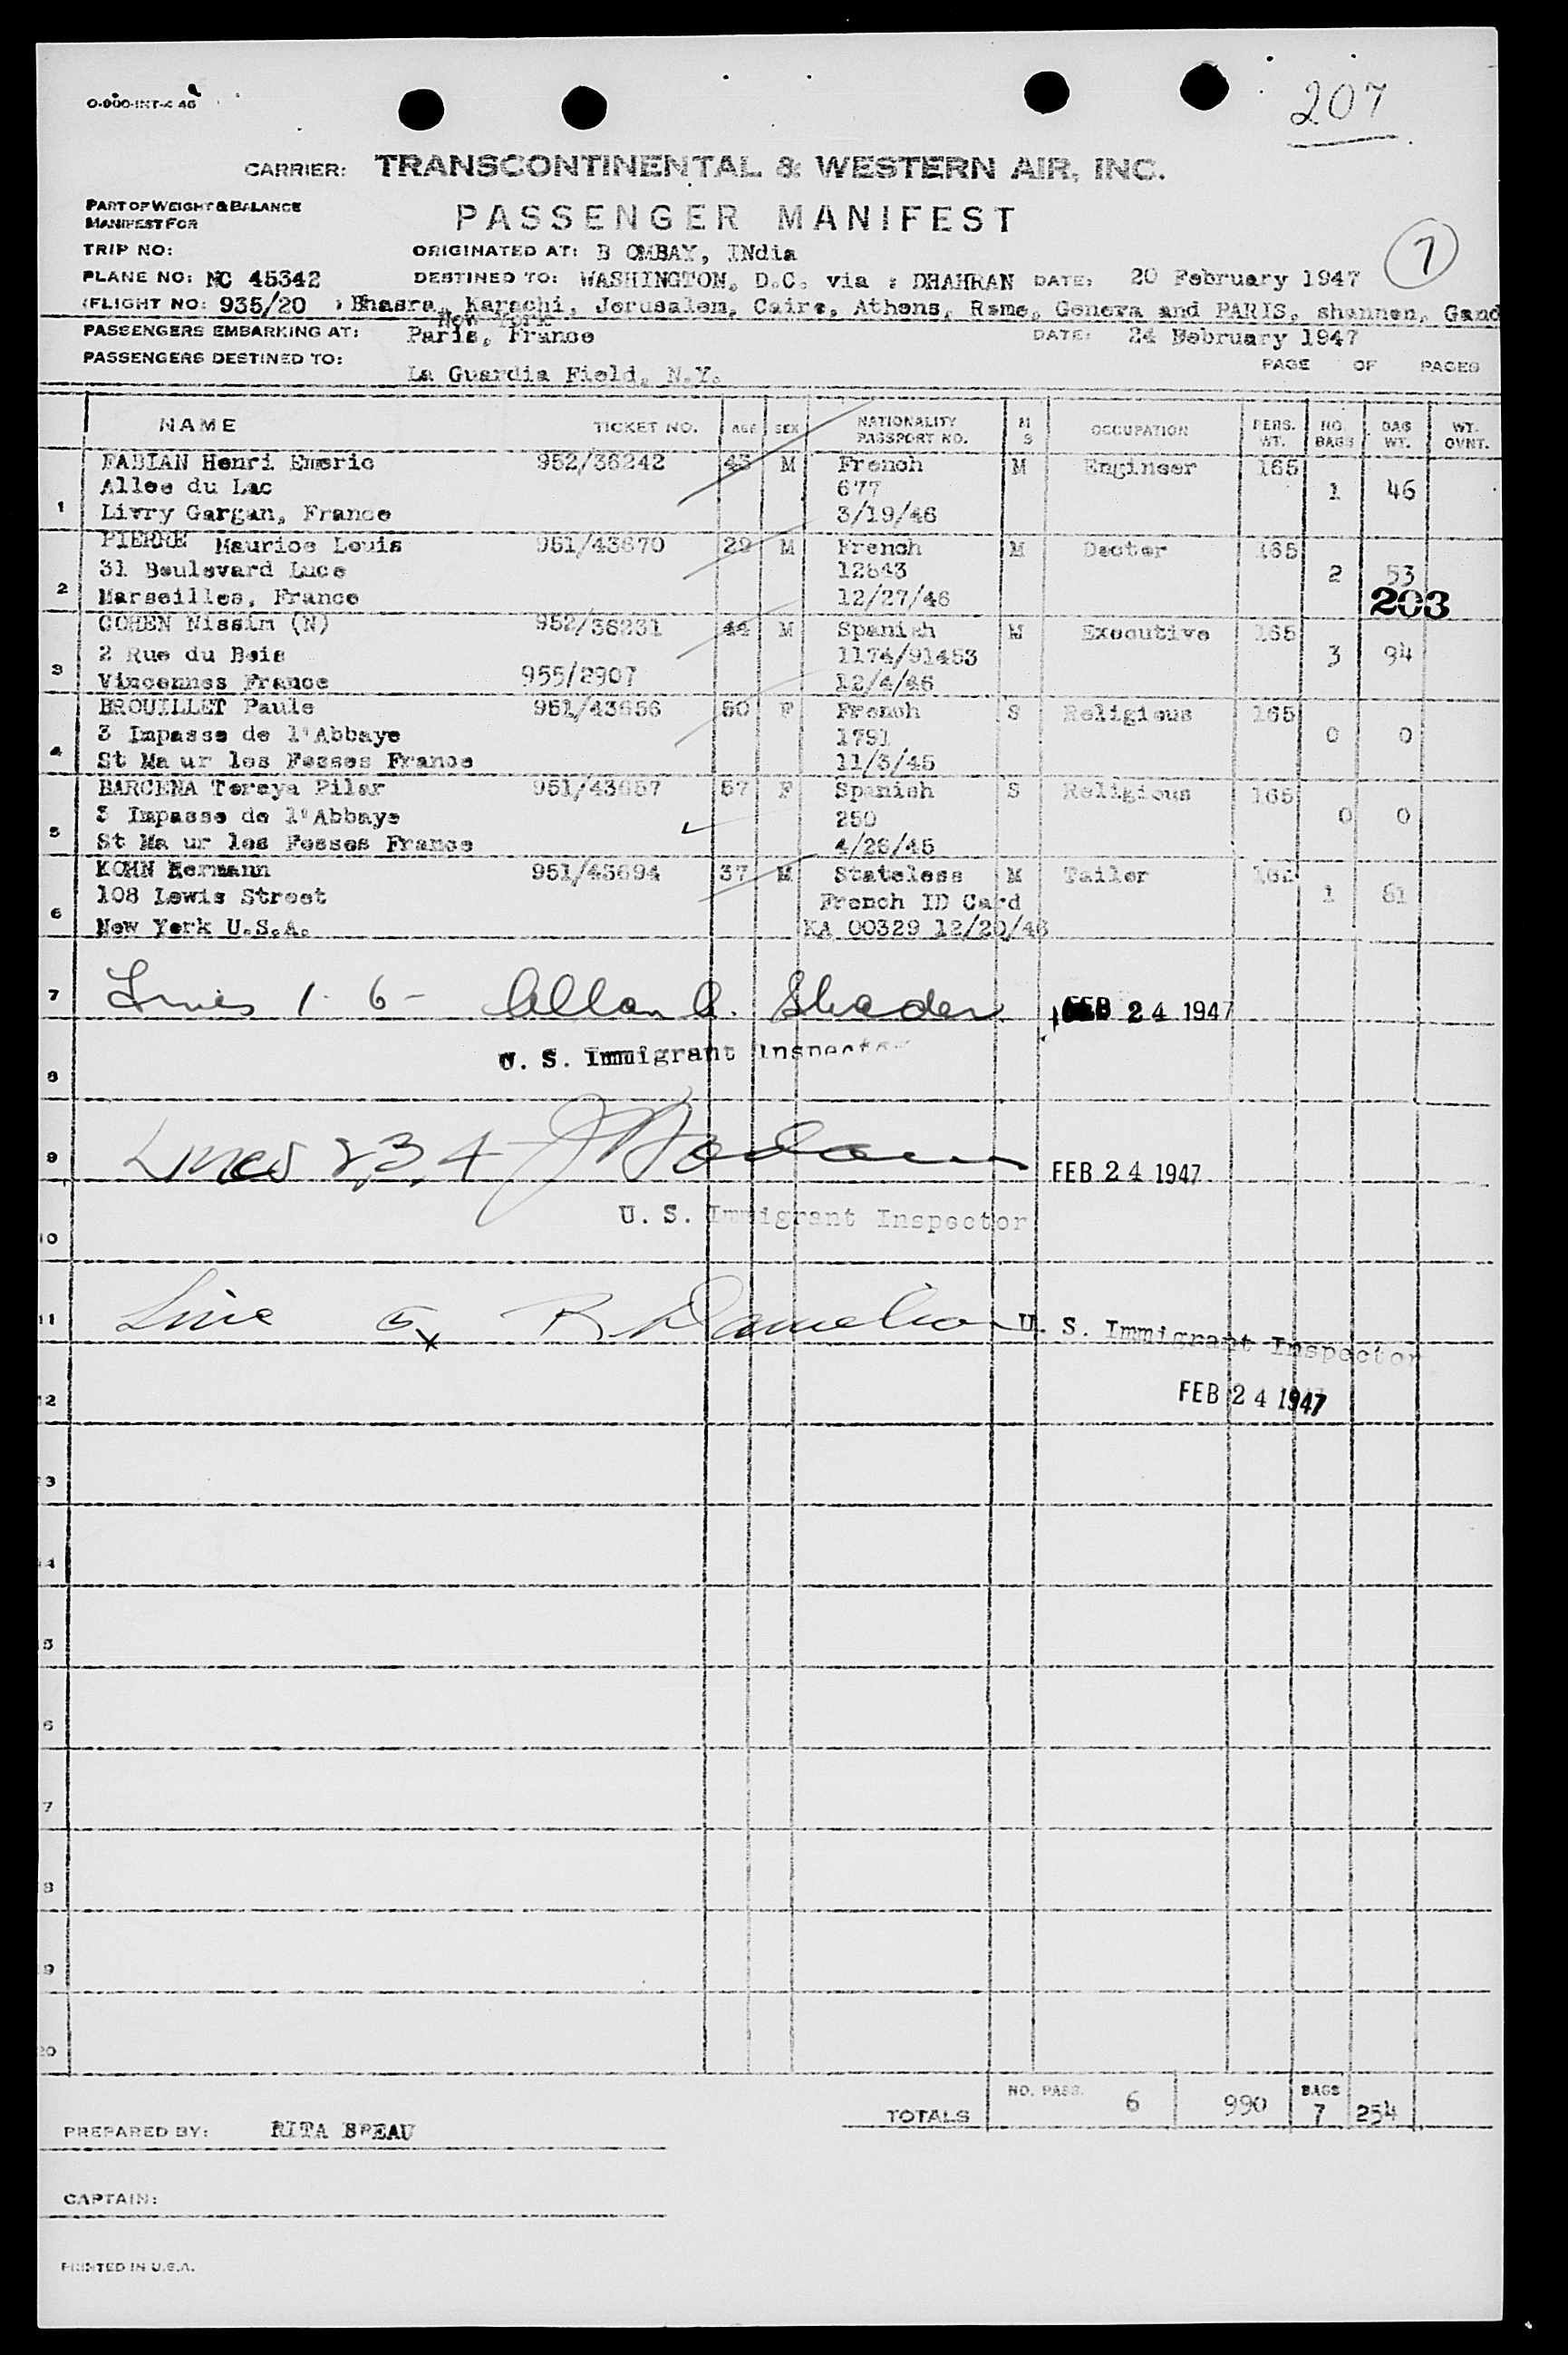 O-900-INT-4 46
207
CARRIER: TRANSCONTINENTAL & WESTERN AIR, INC.
PART OF WEIGHT & BALANCE
MANIFEST FOR
PASSENGER MANIFEST
7
TRIP NO: ORIGINATED AT: B OMBAY, INdia
PLANE NO: NC 45342 DESTINED TO: WASHINGTON, D.C. via : DHAHRAN DATE: 20 February 1947
FLIGHT NO: 935/20 Bhasra, Karachi, Jerusalem, Cairo, Athens, Rome, Geneva and PARIS, shannon, Gand
New York
PASSENGERS EMBARKING AT: Paris, France DATE: 24 February 1947
PASSENGERS DESTINED TO: La Guardia Field, N.Y. PAGE OF PAGES
NAME TICKET NO. AGE SEX NATIONALITY PASSPORT NO. M S OCCUPATION PERS. WT. NO. BAGS BAG WT. WT. OVNT.
FABIAN Henri Emeric 952/36242 45 M French M Engineer 165
Allee du Lac 677 1 46
1 Livry Gargan, France 3/19/46
PIERRE Maurice Louis 951/43670 29 M French M Doctor 165
31 Boulevard Luce 12643 2 53
2 Marseilles, France 12/27/46 203
COHEN Nissim (N) 952/36231 44 M Spanish M Executive 165
2 Rue du Bois 1174/91453 3 94
3 Vincennes France 955/2907 12/4/46
BROUILLET Paule 951/43656 50 F French S Religious 165
3 Impasse de l'Abbaye 1791 0 0
4 St Ma ur les Fosses France 11/3/45
BARCENA Toraya Pilar 951/43657 57 F Spanish S Religious 165
3 Impasse de l'Abbaye 250 0 0
5 St Ma ur les Fosses France 4/26/45
KOHN Hermann 951/43694 37 M Stateless M Tailor 162
108 Lewis Street French ID Card 1 61
6 New York U.S.A. KA 00329 12/20/46
7 Lines 1 - 6 - Allan A. Shader FEB 24 1947
U. S. Immigrant Inspector
8
9 Lines 2, 3, 4 FEB 24 1947
U. S. Immigrant Inspector
10
11 Line 5 x R. Damelio U. S. Immigrant Inspector
12 FEB 24 1947
3
14
5
6
7
8
9
20
TOTALS NO. PASS. 6 990 BAGS 7 254
PREPARED BY: RITA BREAU
CAPTAIN:
PRINTED IN U.S.A.